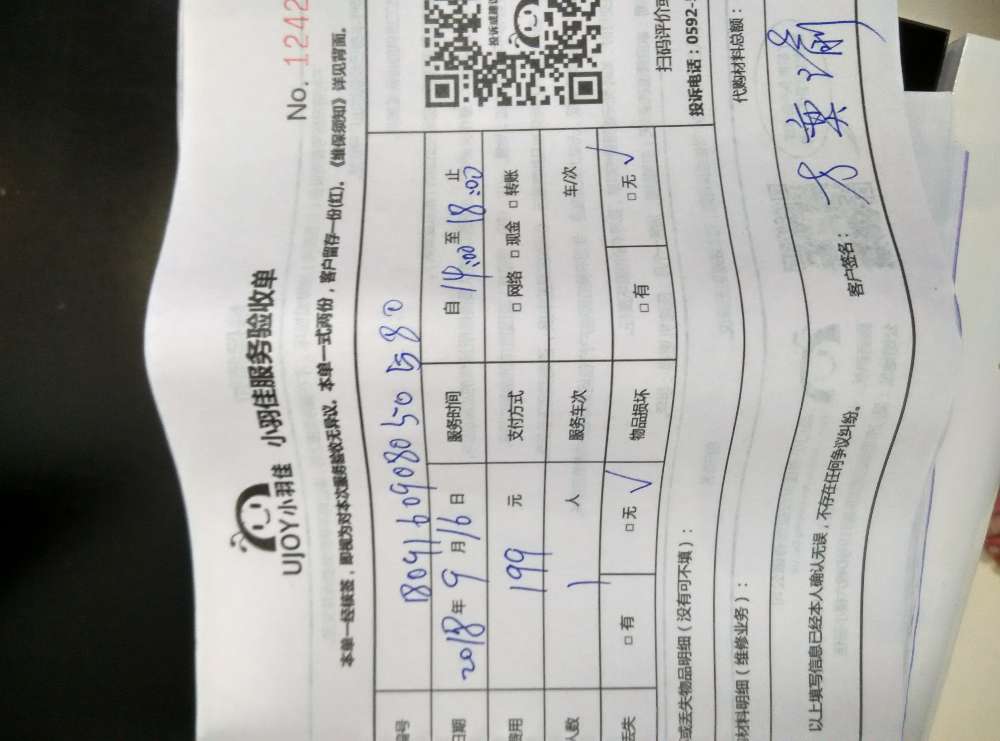 No. 1242
UJOY小羽佳 小羽佳服务验收单
本单一经核签，即视为对本次服务验收无异议。本单一式两份，客户留存一份(红)。《维保须知》详见背面。
编号 18091609080505580
日期 2018年9月16日 服务时间 自14:00至18:00止
费用 199元 支付方式 □网络 □现金 □转账
人数 1人 服务车次 车/次
丢失 □有 □无 √ 物品损坏 □有 □无 √
投诉或建议
扫码评价或
投诉电话：0592-
或丢失物品明细（没有可不填）：
材料明细（维修业务）：
代购材料总额：
以上填写信息已经本人确认无误，不存在任何争议纠纷。
客户签名：